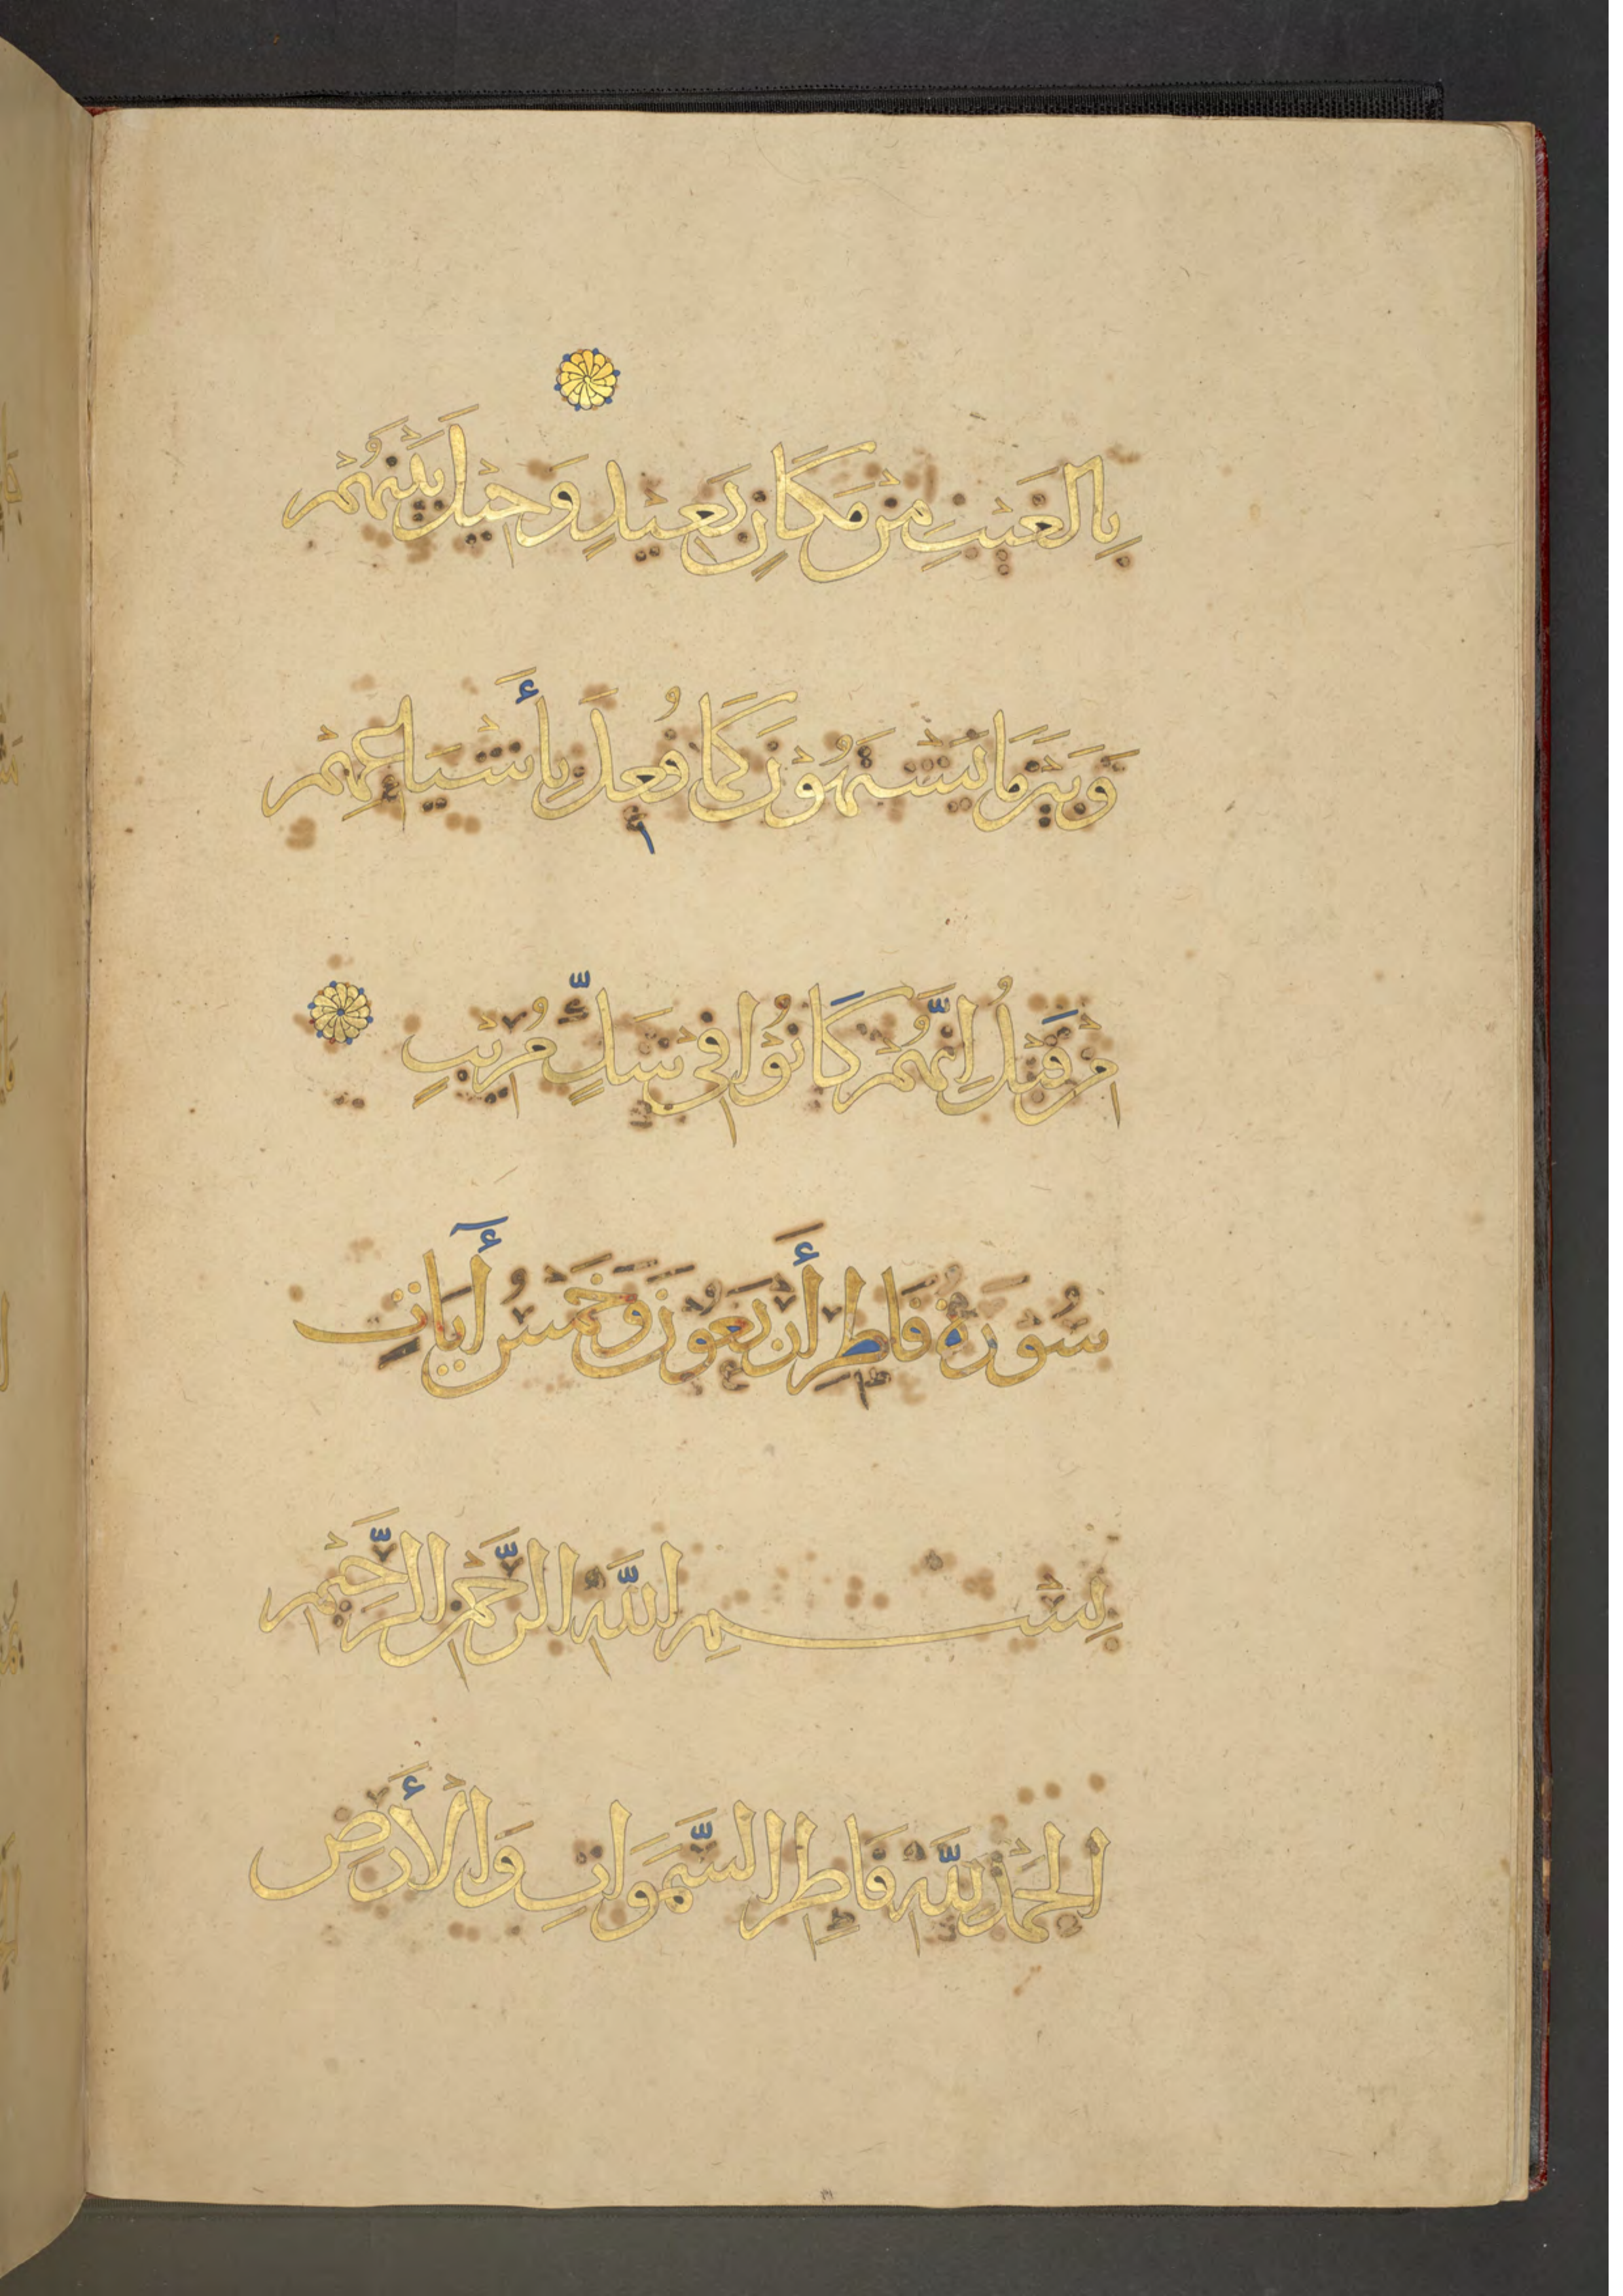 بِالْغَيْبِ مِنْ مَكَانٍ بَعِيدٍ وَحِيلَ بَيْنَهُمْ
وَبَيْنَ مَا يَشْتَهُوْنَ كَمَا فُعِلَ بِأَشْيَاعِهِمْ
مِنْ قَبْلُ إِنَّهُمْ كَانُوْا فِي شَكٍّ مُرِيْبٍ
سُوْرَةُ فَاطِرِ أَرْبَعُوْنَ وَخَمْسُ أٓيَاتٍ
بِسْمِ اللّٰهِ الرَّحْمٰنِ الرَّحِيْمِ
الْحَمْدُ لِلّٰهِ فَاطِرِ السَّمَوَاتِ وَالْأَرْضِ